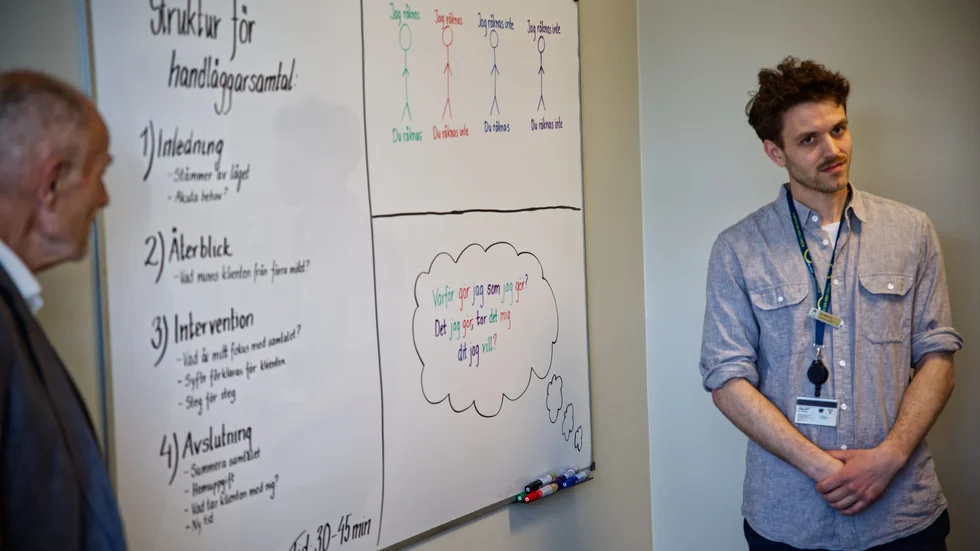 Struktur för
handläggarsamtal:
1) Inledning
- Stämmer av läget
- Akuta behov?
2) Återblick
- Vad minns klienten från förra mötet?
3) Intervention
- Vad är mitt fokus med samtalet?
- Syfte förklaras för klienten
- Steg för steg
4) Avslutning
- Summera samtalet
- Hemuppgift
- Vad tar klienten med sig?
- Ny tid
Tid: 30-45 min
Jag räknas
Jag räknas
Jag räknas inte
Jag räknas inte
Du räknas
Du räknas inte
Du räknas
Du räknas inte
Varför gör jag som jag gör?
Det jag gör, tar det mig
dit jag vill?